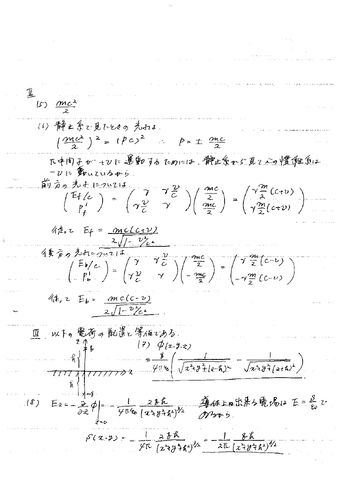 II
(5) mc²/2
(6) 静止系で見たときの光子は
(mc²/2)² = (Pc)² ∴ P = ± mc/2
π中間子が + v に運動するためには、静止系から見て の慣性系は
- v に動いているから
前方の光子については
(E_f/c P_f) = (γ γv/c γv/c γ)(mc/2 mc/2) = (γ m/2 (c+v) γ m/2 (c+v))
従って E_f = mc(c+v) / 2√1-v²/c²
後方の光子については
(E_b/c P_b) = (γ γv/c γv/c γ)(mc/2 -mc/2) = (γ m/2 (c-v) -γ m/2 (c-v))
従って E_b = mc(c-v) / 2√1-v²/c²
III 以下の電荷の配置と等価である.
(7) φ(x,y,z)
= q/4πε₀ (1/√x²+y²+(z-h)² - 1/√x²+y²+(z+h)²)
(8) E_z = -∂/∂z φ| = -1/4πε₀ 2qh/(x²+y²+h²)^3/2 導体上に出来る電場は E = で
あるから
ρ(x,y) = -1/4π 2qh/(x²+y²+h²)^3/2 = -1/2π qh/(x²+y²+h²)^3/2